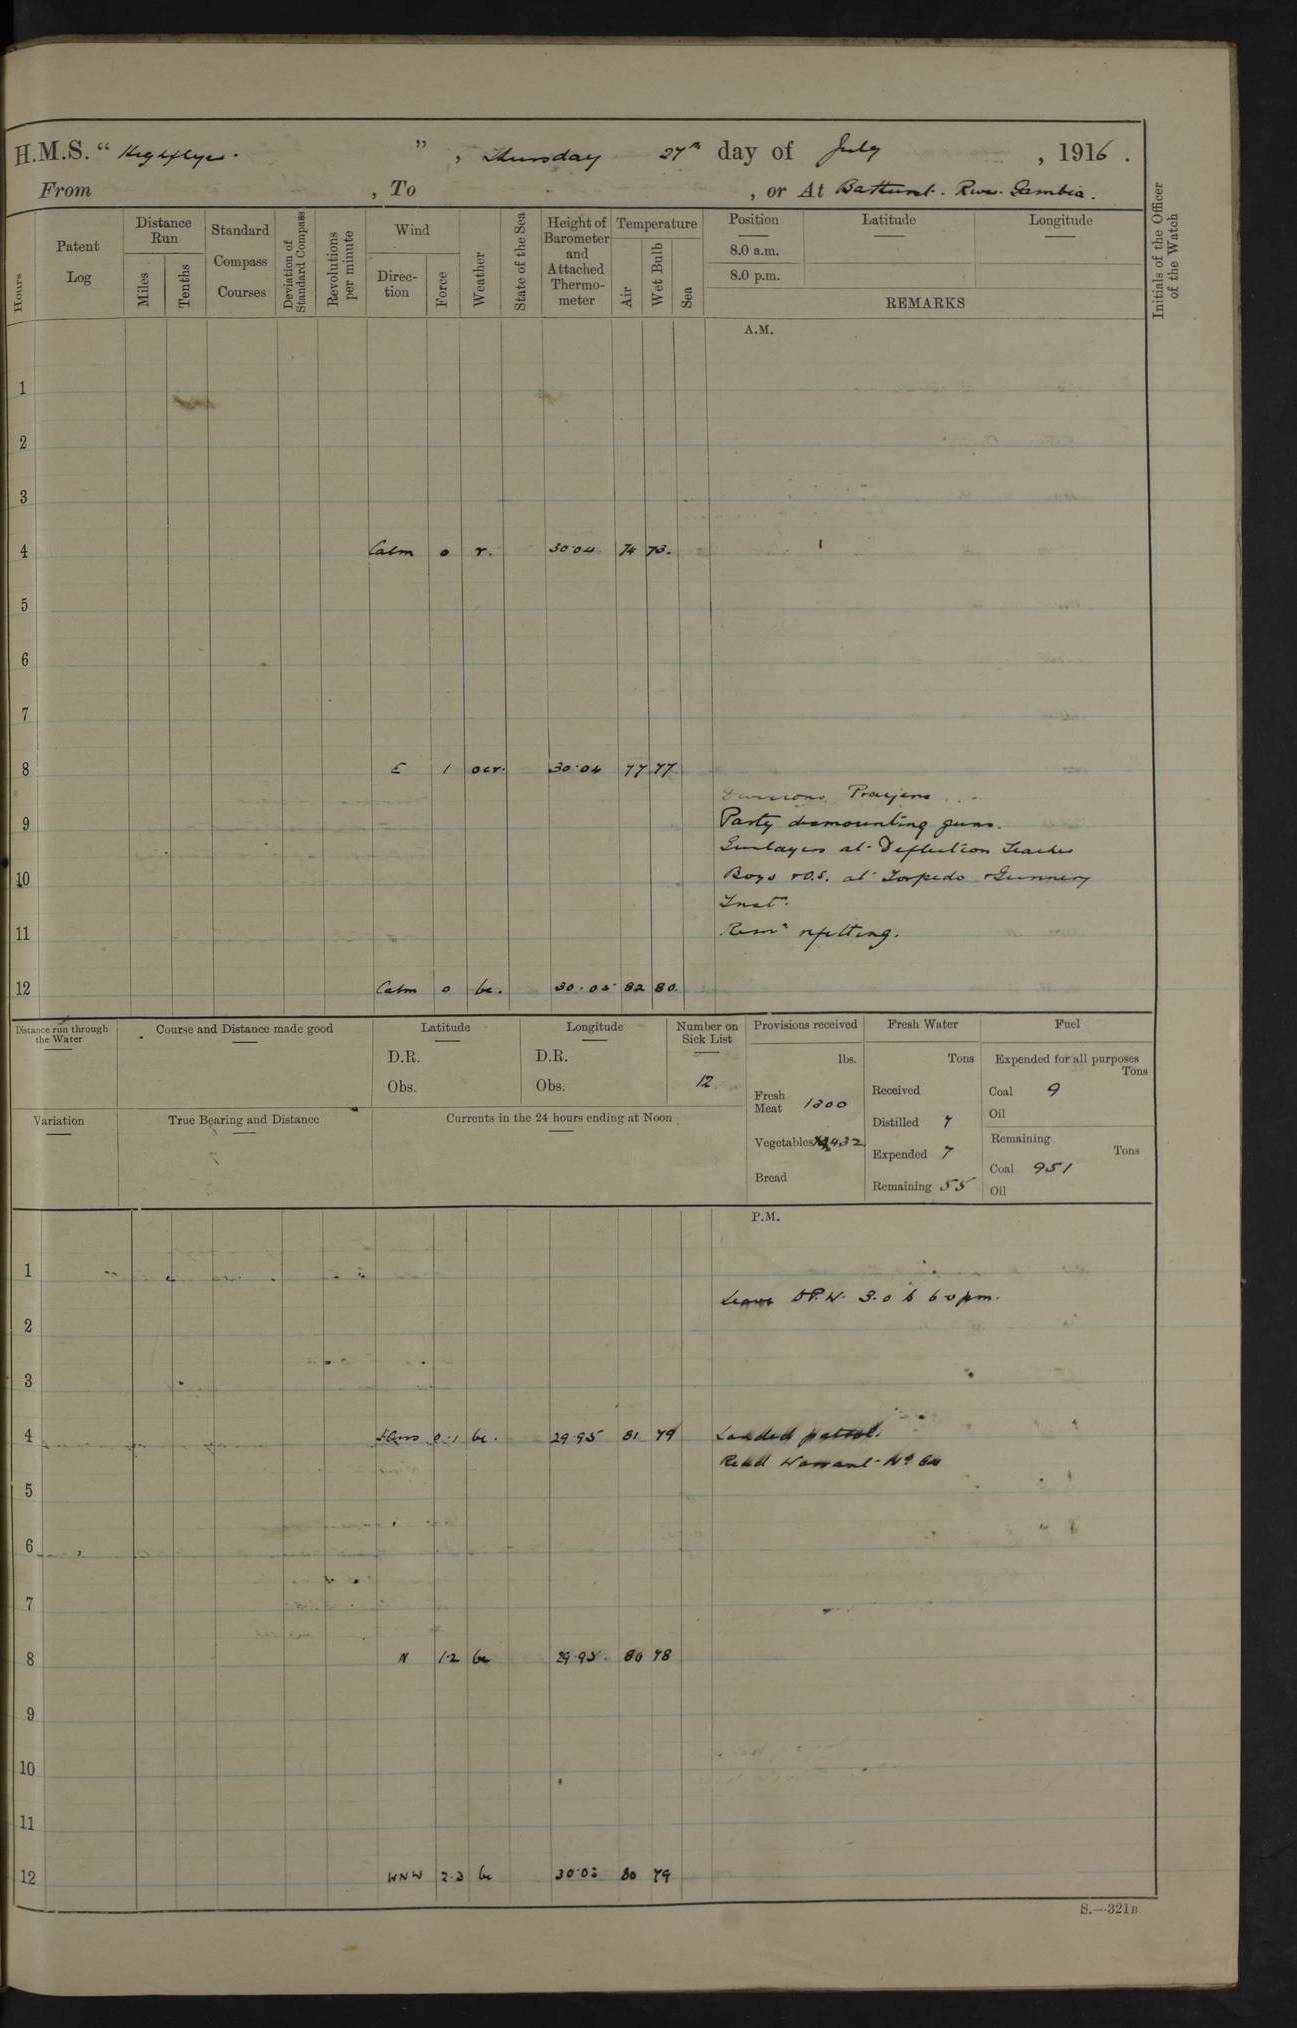 H.M.S. " Highflyer. ", Thursday 27th day of July, 1916.
From , To , or At Bathurst. River Gambia.
Hours
Patent Log
Distance Run
Miles
Tenths
Standard Compass Courses
Deviation of Standard Compass
Revolutions per minute
Wind
Direction
Force
Weather
State of the Sea
Height of Barometer and Attached Thermometer
Temperature
Air
Wet Bulb
Sea
Position
Latitude
Longitude
8.0 a.m.
8.0 p.m.
REMARKS
Initials of the Officer of the Watch
A.M.
1
2
3
4 Calm 0 r. 30.04 74 73.
5
6
7
8 E 1 ocr. 30.04 77 77
Divisions. Prayers
9 Party dismounting guns.
Gunlayers at Deflection Teacher
10 Boys & O.S. at Torpedo & Gunnery
Inst.
11 Remr refitting.
12 Calm 0 bc. 30.05 82 80.
Distance run through the Water
Course and Distance made good
Latitude
D.R.
Obs.
Longitude
D.R.
Obs.
Number on Sick List
12
Provisions received
lbs.
Fresh Meat 1300
Vegetables 432
Bread
Fresh Water
Tons
Received
Distilled 7
Expended 7
Remaining 55
Fuel
Expended for all purposes
Tons
Coal 9
Oil
Remaining
Tons
Coal 951
Oil
Variation
True Bearing and Distance
Currents in the 24 hours ending at Noon
P.M.
1
Leave 3.0 to 6.0 pm.
2
3
4 0.1 bc. 29.95 81 79 Landed patrol.
Read Warrant No
5
6
7
8 N 1.2 bc 29.95 80 78
9
10
11
12 WNW 2.3 bc 30.03 80 79
S.—321B